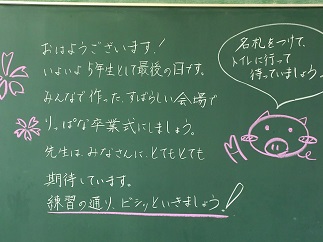 おはようございます!
いよいよ5年生として最後の日です。
みんなで作った、すばらしい会場で
りっぱな卒業式にしましょう。
先生は、みなさんに、とてもとても
期待しています。
練習の通り、ビシッといきましょう!
名札をつけて、
トイレに行って
待っていましょう。